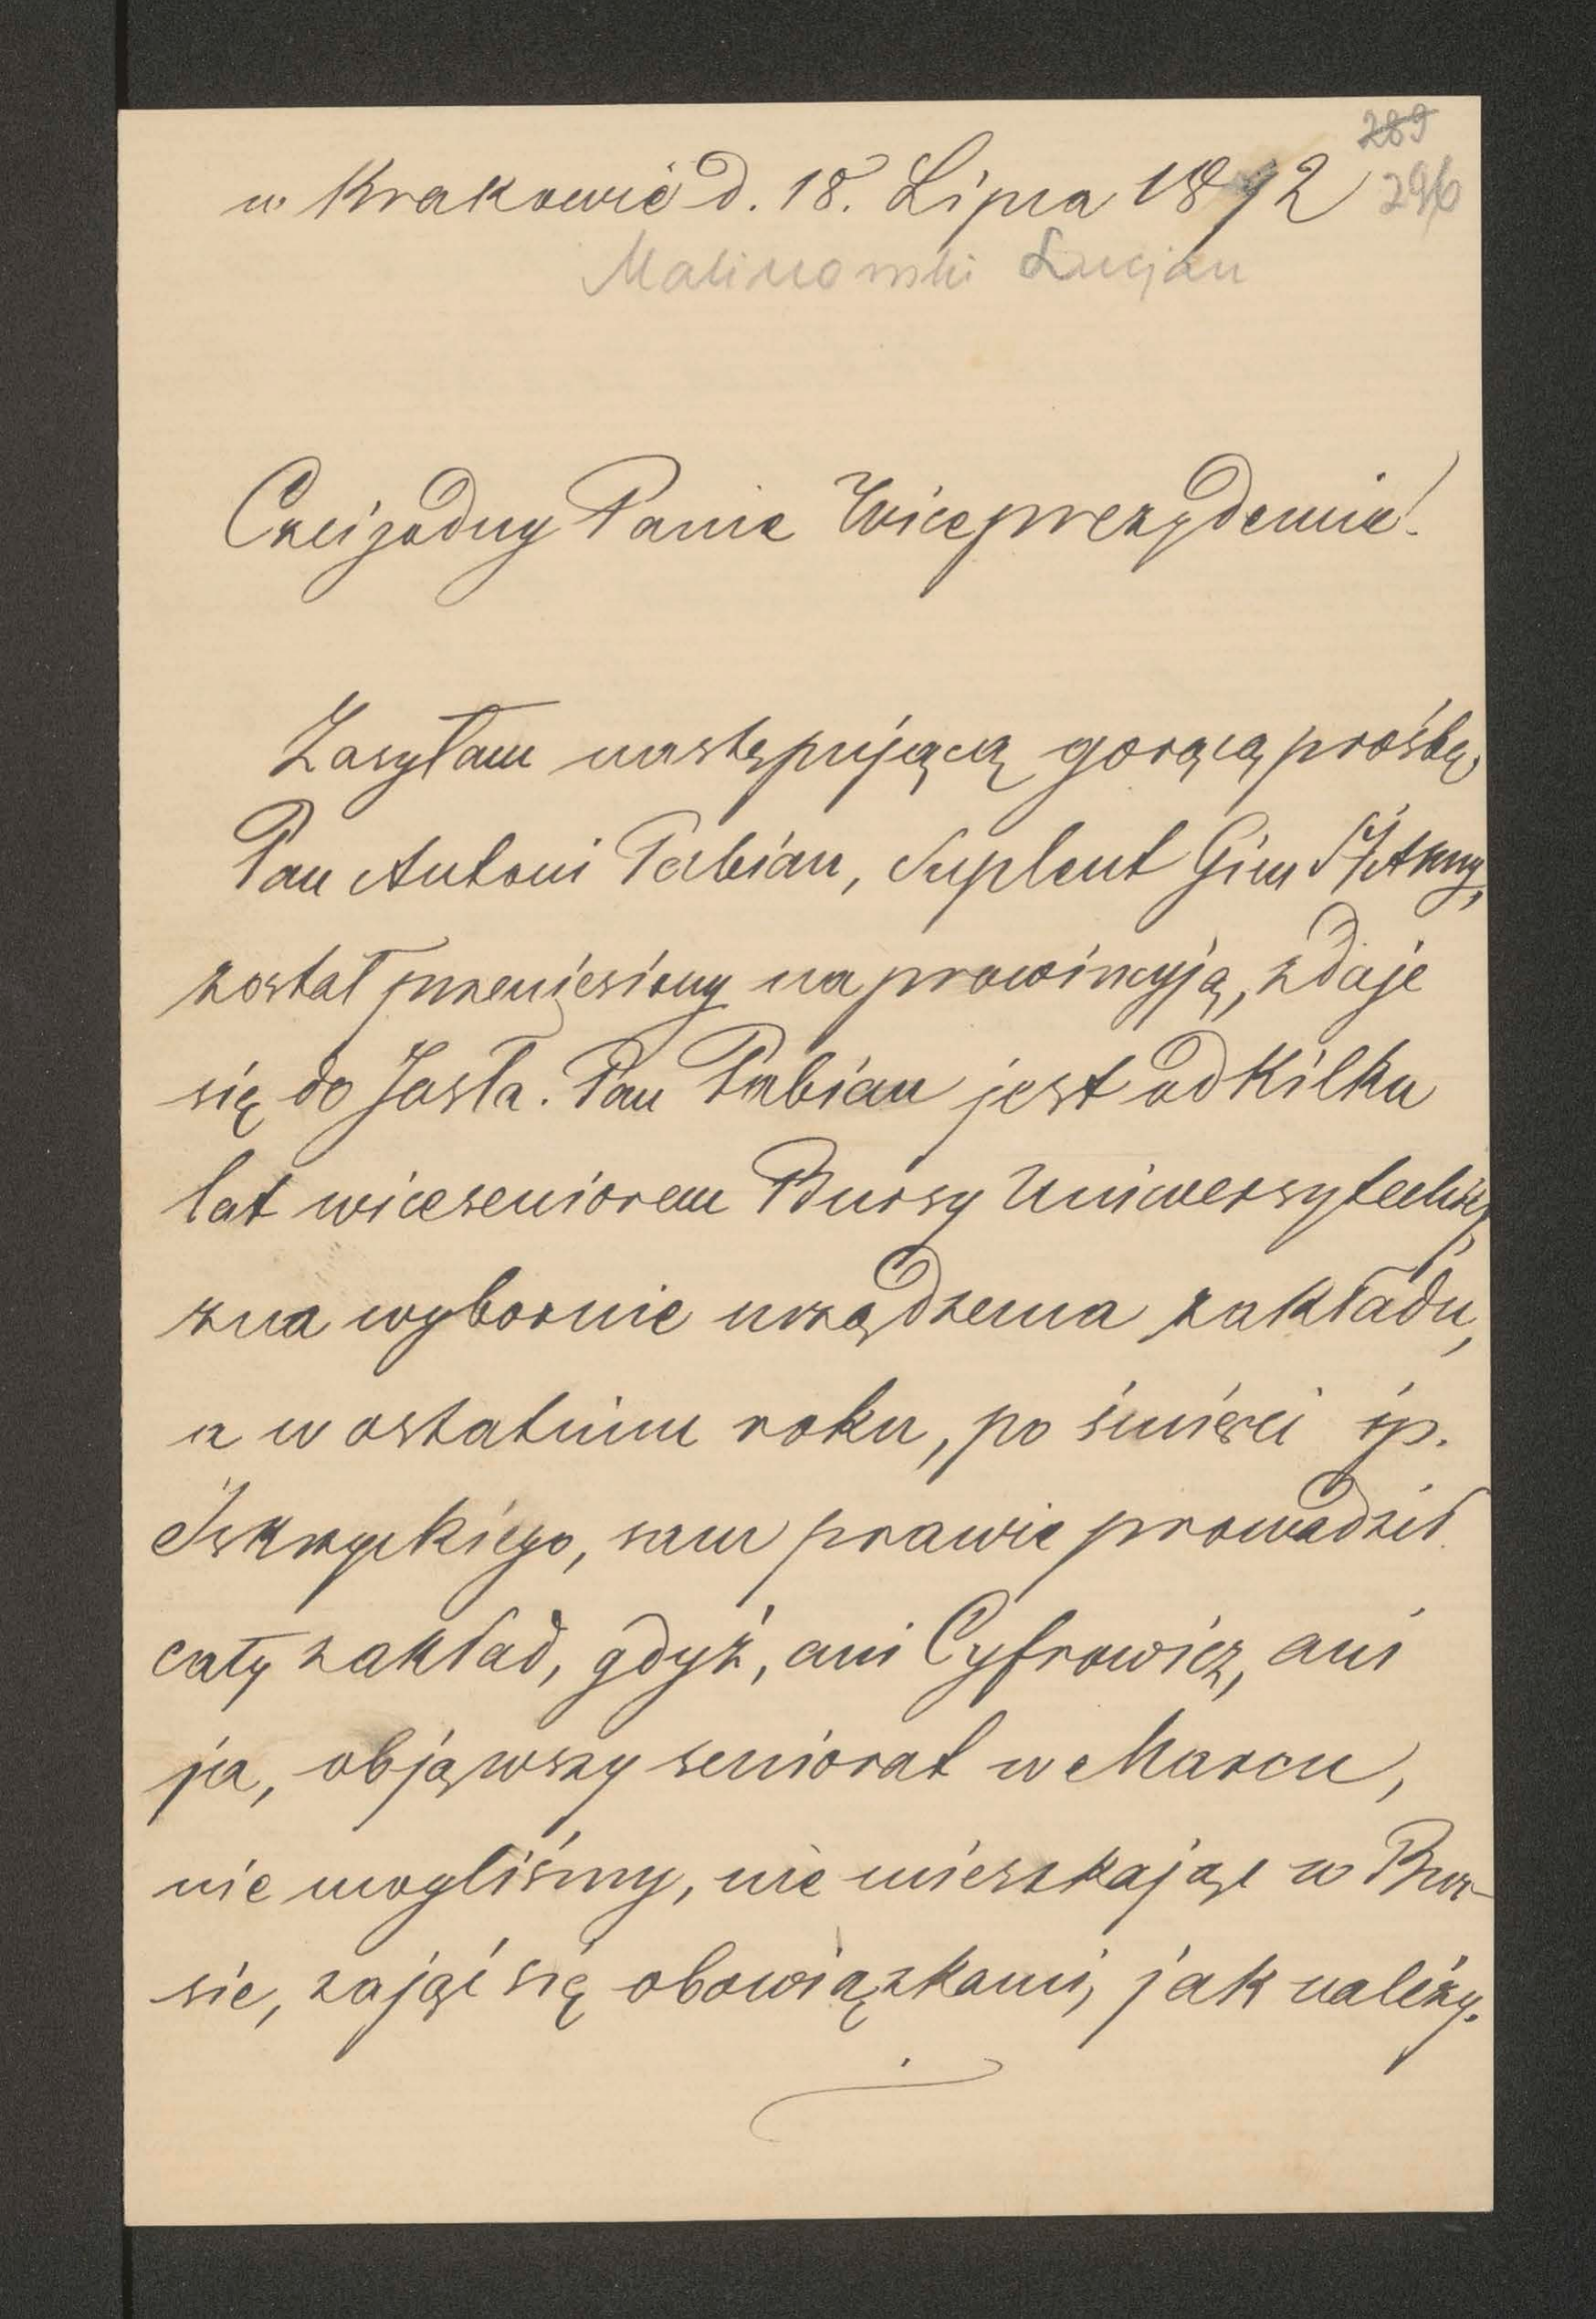 289
w Krakowie d. 18. Lipca 1892
296
Malinowski Lucjan
Czcigodny Panie Wiceprezydencie!
Zasyłam następującą gorącą prośbę.
Pan Antoni Pabian, Suplent Gim Śtej Anny,
został przeniesiony na prowincyją, zdaje
się do Jasła. Pan Pabian jest od kilku
lat wiceseniorem Bursy Uniwersyteckiej,
zna wybornie urządzenia zakładu,
a w ostatnim roku, po śmierci śp.
Iskrzyckiego, sam prawie prowadził
cały zakład, gdyż, ani Cyfrowicz, ani
ja, objąwszy seniorat w Marcu,
nie mogliśmy, nie mieszkając w Bur-
sie, zająć się obowiązkami, jak należy.